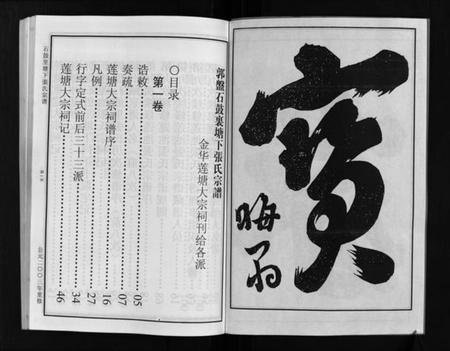 寶
晦翁
郭盤石鼓裏塘下張氏宗譜
金华莲塘大宗祠刊给各派
〇目录
第一卷
诰敕………05
奏疏………07
莲塘大宗祠谱序………16
凡例………27
行字定式前后三十三派………34
莲塘大宗祠记………46
石鼓里塘下張氏宗谱
公元二〇〇二年重修